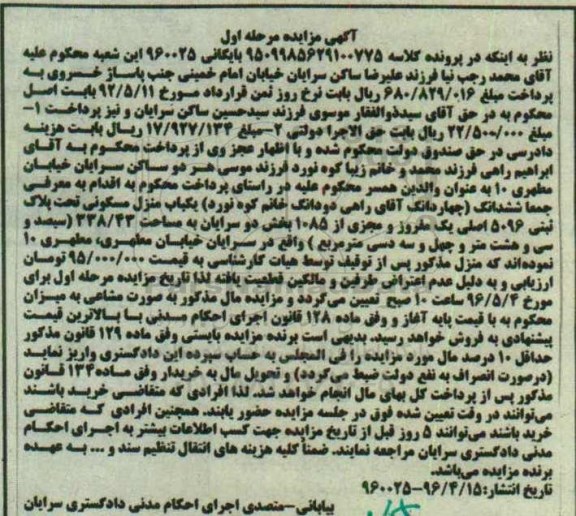 آگهی مزایده مرحله اول
نظر به اینکه در پرونده کلاسه ۹۵۰۹۹۸۵۶۲۹۱۰۰۷۷۵ بایگانی ۹۶۰۰۲۵ این شعبه محکوم علیه
آقای محمد رجب نیا فرزند علیرضا ساکن سرایان خیابان امام خمینی جنب پاساژ خسروی به
پرداخت مبلغ ۶۸۰/۸۲۹/۰۱۶ ریال بابت نرخ روز ثمن قرارداد مورخ ۹۲/۵/۱۱ بابت اصل
محکوم به در حق آقای سیدذوالفقار موسوی فرزند سیدحسین ساکن سرایان و نیز پرداخت ۱-
مبلغ ۲۲/۵۰۰/۰۰۰ ریال بابت حق الاجرا دولتی ۲-مبلغ ۱۷/۹۲۷/۱۳۴ ریال بابت هزینه
دادرسی در حق صندوق دولت محکوم شده و با اظهار عجز وی از پرداخت محکوم به آقای
ابراهیم راهی فرزند محمد و خانم زیبا کوه نورد فرزند موسی هر دو ساکن سرایان خیابان
مطهری ۱۰ به عنوان والدین همسر محکوم علیه در راستای پرداخت محکوم به اقدام به معرفی
جمعا ششدانگ (چهاردانگ آقای راهی دودانگ خانم کوه نورد) یکباب منزل مسکونی تحت پلاک
ثبتی ۵۰۹۶ اصلی یک مفروز و مجزی از ۱۰۸۵ بخش دو سرایان به مساحت ۳۳۸/۴۳ (سیصد و
سی و هشت متر و چهل و سه دسی مترمربع ) واقع در سرایان خیابان مطهری، مطهری ۱۰
نموده‌اند که منزل مذکور پس از توقیف توسط هیات کارشناسی به قیمت ۹۵/۰۰۰/۰۰۰ تومان
ارزیابی و به دلیل عدم اعتراض طرفین و مالکین قطعیت یافته لذا تاریخ مزایده مرحله اول برای
مورخ ۹۶/۵/۴ ساعت ۱۰ صبح تعیین می‌گردد و مزایده مال مذکور به صورت مشاعی به میزان
محکوم به با قیمت پایه آغاز و وفق ماده ۱۲۸ قانون اجرای احکام مدنی با بالاترین قیمت
پیشنهادی به فروش خواهد رسید. بدیهی است برنده مزایده بایستی وفق ماده ۱۲۹ قانون مذکور
حداقل ۱۰ درصد مال مورد مزایده را فی المجلس به حساب سپرده این دادگستری واریز نماید
(درصورت انصراف به نفع دولت ضبط می‌گردد) و تحویل مال به خریدار وفق ماده۱۳۴ قانون
مذکور پس از پرداخت کل بهای مال انجام خواهد شد. لذا افرادی که متقاضی خرید باشند
می‌توانند در وقت تعیین شده فوق در جلسه مزایده حضور یابند. همچنین افرادی که متقاضی
خرید باشند می‌توانند ۵ روز قبل از تاریخ مزایده جهت کسب اطلاعات بیشتر به اجرای احکام
مدنی دادگستری سرایان مراجعه نمایند. ضمناً کلیه هزینه های انتقال تنظیم سند و ... به عهده
برنده مزایده می‌باشد.
تاریخ انتشار:۹۶/۴/۱۵-۹۶۰۰۲۵
بیابانی-متصدی اجرای احکام مدنی دادگستری سرایان